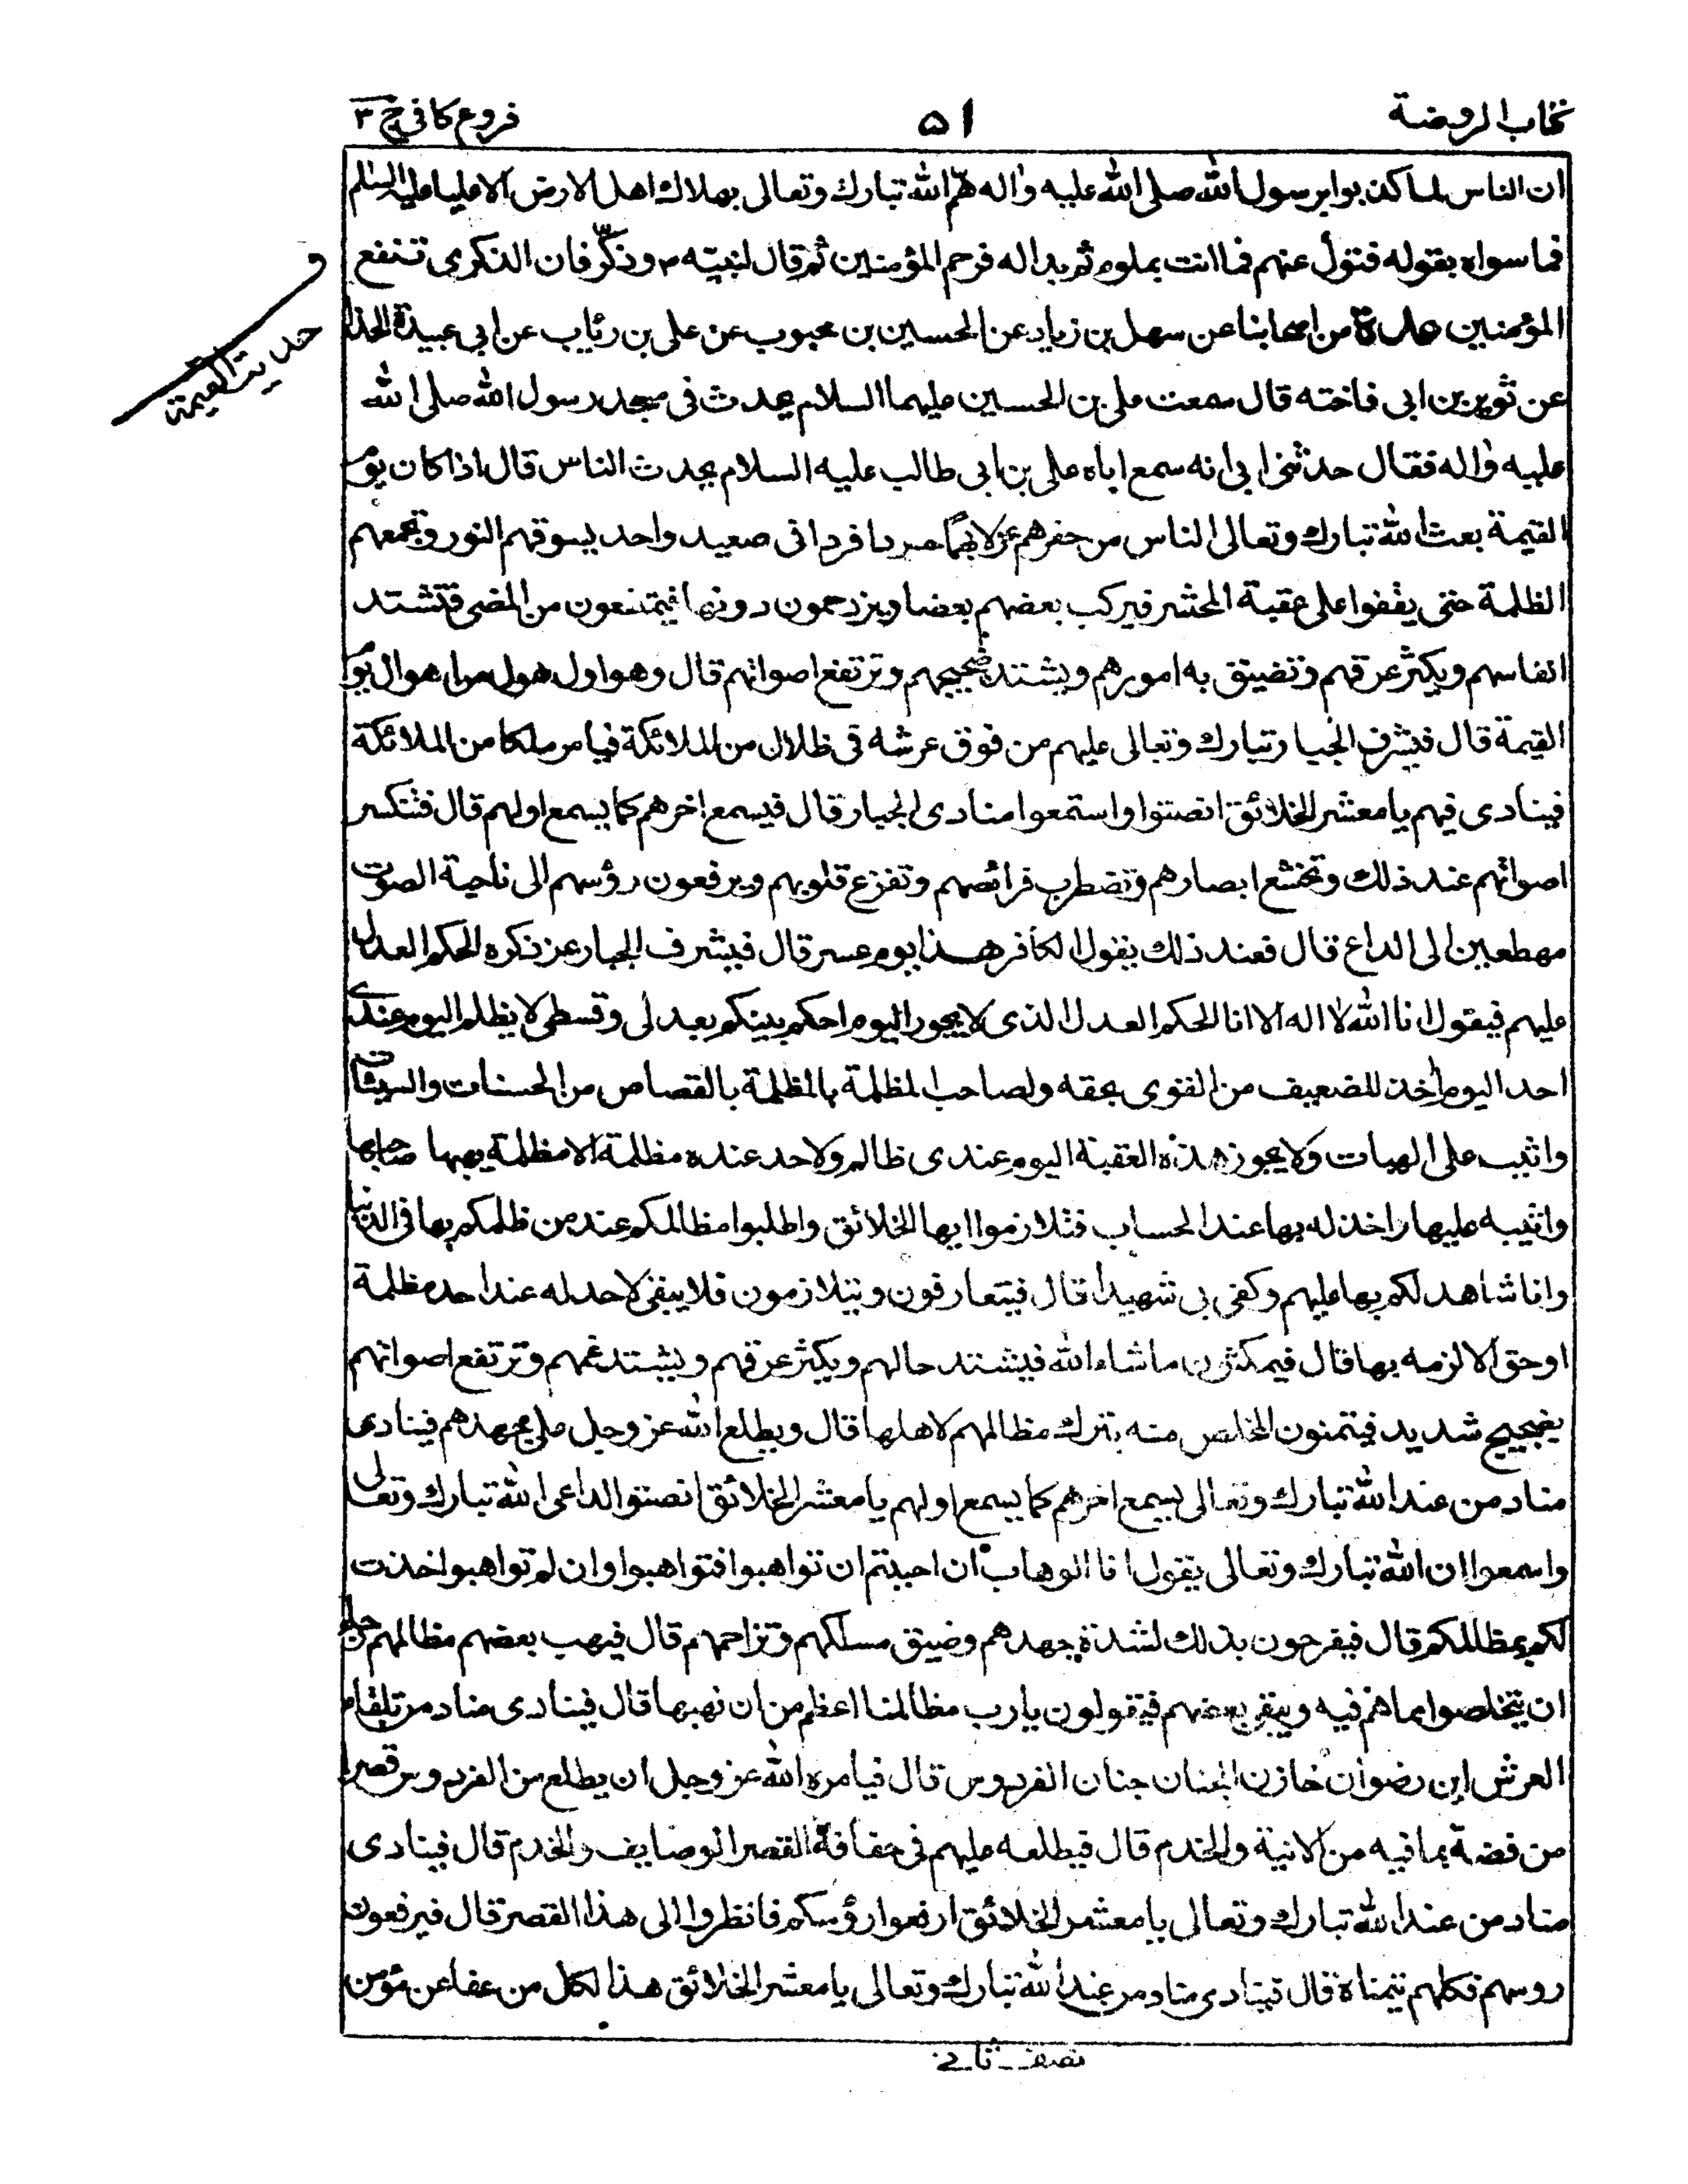 كتاب الروضة
٥١
فروع كافي ج ٣
ان الناس لما كذبوا برسول الله صلى الله عليه واله هم الله تبارك وتعالى بهلاك اهل الارض الا عليا عليه السلم
فما سواه بقوله فتول عنهم فما انت بملوم ثم بدا له فرحم المؤمنين ثم قال لنبيّه ص وذكّر فان الذكرى تنفع
المؤمنين عدة من اصحابنا عن سهل بن زياد عن الحسين بن محبوب عن على بن رئاب عن ابى عبيدة الحذاء
عن ثوير بن ابى فاخته قال سمعت على بن الحسين عليهما السلام يحدث فى مسجد رسول الله صلى الله
عليه واله فقال حدثنى ابى انه سمع اباه على بن ابى طالب عليه السلام يحدث الناس قال اذا كان يوم
القيمة بعث الله تبارك وتعالى الناس من حفرهم عزلا بهما جردا مردا فى صعيد واحد يسوقهم النور وتجمعهم
الظلمة حتى يقفوا على عقبة المحشر فيركب بعضهم بعضا ويزدحمون دونها فيمتنعون من المضى فتشتد
انفاسهم ويكثر عرقهم وتضيق به امورهم ويشتد ضجيجهم وترتفع اصواتهم قال وهو اول هول من اهوال يوم
القيمة قال فيشرف الجبار تبارك وتعالى عليهم من فوق عرشه فى ظلال من الملائكة فيامر ملكا من الملائكة
فينادى فيهم يا معشر الخلائق انصتوا واستمعوا منادى الجبار قال فيسمع اخرهم كما يسمع اولهم قال فتنكسر
اصواتهم عند ذلك وتخشع ابصارهم وتضطرب فرائصهم وتفزع قلوبهم ويرفعون رؤسهم الى ناحية الصوت
مهطعين الى الداع قال فعند ذلك يقول الكافر هذا يوم عسر قال فيشرف الجبار عز ذكره الحكم العدل
عليهم فيقول انا الله لا اله الا انا الحكم العدل الذى لا يجور اليوم احكم بينكم بعدلى وقسطى لا يظلم اليوم عندى
احد اليوم اخذ للضعيف من القوى بحقه ولصاحب المظلمة بالمظلمة بالقصاص من الحسنات والسيئات
واثيب على الهبات ولا يجوز هذه العقبة اليوم عندى ظالم ولاحد عنده مظلمة الا مظلمة يهبها صاحبها
واثيبه عليها واخذ له بها عند الحساب فتلازموا ايها الخلائق واطلبوا مظالمكم عند من ظلمكم بها فى الدنيا
وانا شاهد لكم بها عليهم وكفى بى شهيدا قال فيتعارفون ويتلازمون فلا يبقى لاحد له عند احد مظلمة
او حق الا لزمه بها قال فيمكثون ما شاء الله فيشتد حالهم ويكثر عرقهم ويشتد غمهم وترتفع اصواتهم
بضجيج شديد فيتمنون المخلص منه بترك مظالمهم لاهلها قال ويطلع الله عز وجل على جهدهم فينادى
مناد من عند الله تبارك وتعالى يسمع اخرهم كما يسمع اولهم يا معشر الخلائق انصتوا لداعى الله تبارك وتعالى
واسمعوا ان الله تبارك وتعالى يقول انا الوهاب ان احببتم ان تواهبوا فتواهبوا وان لم تواهبوا اخذت
لكم بمظالمكم قال فيفرحون بذلك لشدة جهدهم وضيق مسلكهم وتزاحمهم قال فيهب بعضهم مظالمهم رجاء
ان يتخلصوا مما هم فيه ويبقى بعضهم فيقولون يا رب مظالمنا اعظم من ان نهبها قال فينادى مناد من تلقاء
العرش اين رضوان خازن الجنان جنان الفردوس قال فيامره الله عز وجل ان يطلع من الفردوس قصرا
من فضة بما فيه من الانية والخدم قال فيطلعه عليهم فى حفافة القصر الوصايف والخدم قال فينادى
مناد من عند الله تبارك وتعالى يا معشر الخلائق ارفعوا رؤسكم فانظروا الى هذا القصر قال فيرفعون
روسهم فكلهم يتمناه قال فينادى مناد من عند الله تبارك وتعالى يا معشر الخلائق هذا لكل من عفا عن مؤمن
نصف ثانى
حديث القيمة